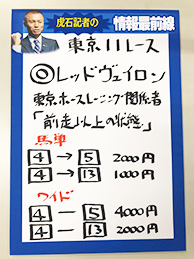 虎石記者の
情報最前線
東京11レース
◎レッドヴェイロン
東京ホースレーシング関係者
「前走以上の状態」
馬単
4→5 2000円
4→13 1000円
ワイド
4―5 4000円
4―13 2000円